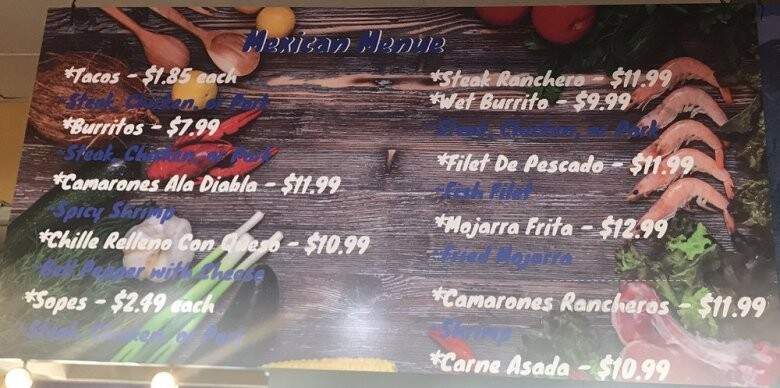 Mexican Menue
*Tacos - $1.85 each
-Steak, Chicken, or Pork
*Burritos - $7.99
-Steak, Chicken, or Pork
*Camarones Ala Diabla - $11.99
-Spicy Shrimp
*Chille Relleno Con Queso - $10.99
-Bell Pepper with Cheese
*Sopes - $2.49 each
-Steak, Chicken, or Pork
*Steak Ranchero - $11.99
*Wet Burrito - $9.99
-Steak, Chicken, or Pork
*Filet De Pescado - $11.99
-Fish Filet
*Mojarra Frita - $12.99
-Fried Mojarra
*Camarones Rancheros - $11.99
-Shrimp
*Carne Asada - $10.99